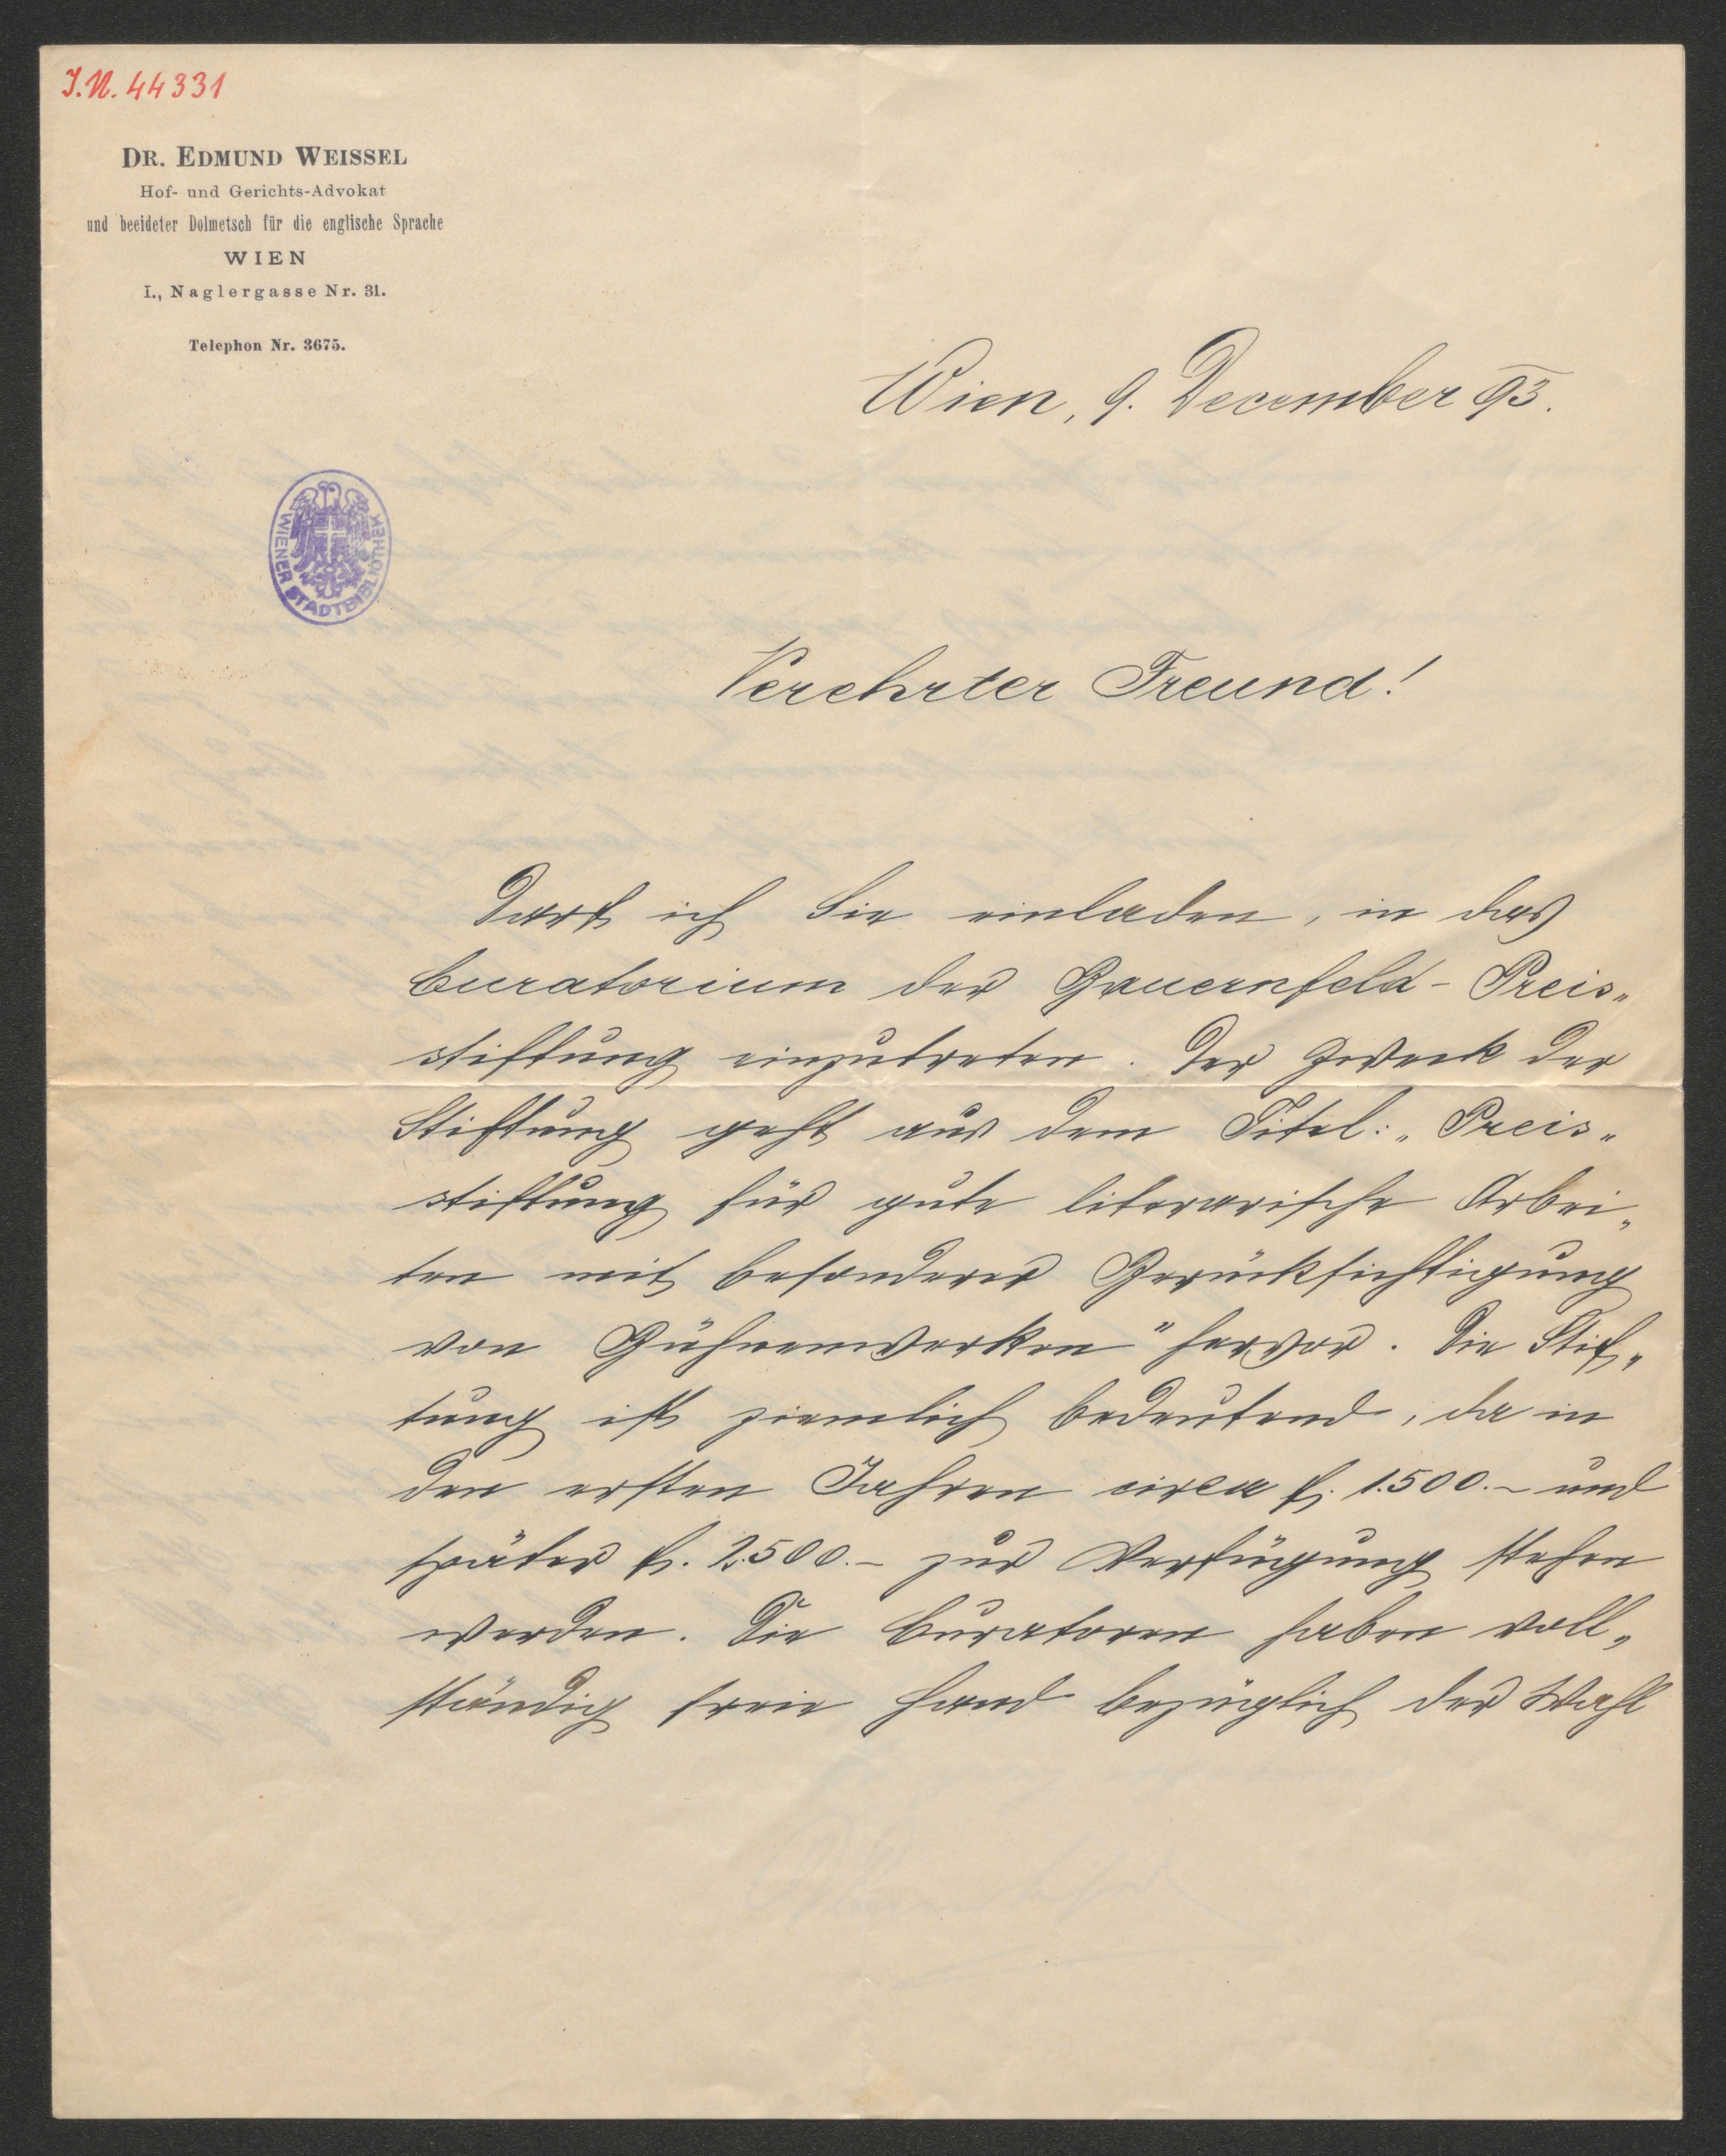 J.N. 44331
DR. EDMUND WEISSEL
Hof- und Gerichts-Advokat
und beeideter Dolmetsch für die englische Sprache
WIEN
I., Naglergasse Nr. 31.
Telephon Nr. 3675.
Wien, 9. December 93.
WIENER STADTBIBLIOTHEK
Verehrter Freund!
Darf ich Sie einladen, in das
Curatorium der Bauernfeld-Preis„
stiftung einzutreten. Der Zweck der
Stiftung geht aus dem Titel: „Preis„
stiftung für gute literarische Arbei„
ten mit besonderer Berücksichtigung
von Bühnenwerken" hervor. Die Stif„
tung ist ziemlich bedeutend, da in
den ersten Jahren circa fl. 1.500.– und
später fl. 2.500.– zur Verfügung stehen
werden. Die Curatoren haben voll„
ständig freie Hand bezüglich der Wahl